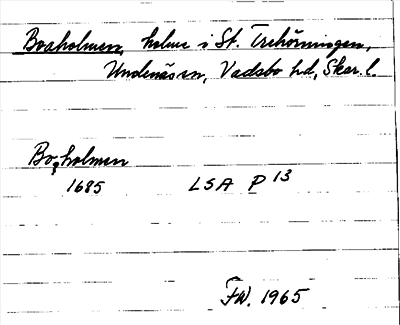 Boaholmen, holme i St. Trehörningen,
Undenäs sn, Vadsbo hd, Skar. l.
Boaholmen
1685 LSA P 13
FW. 1965